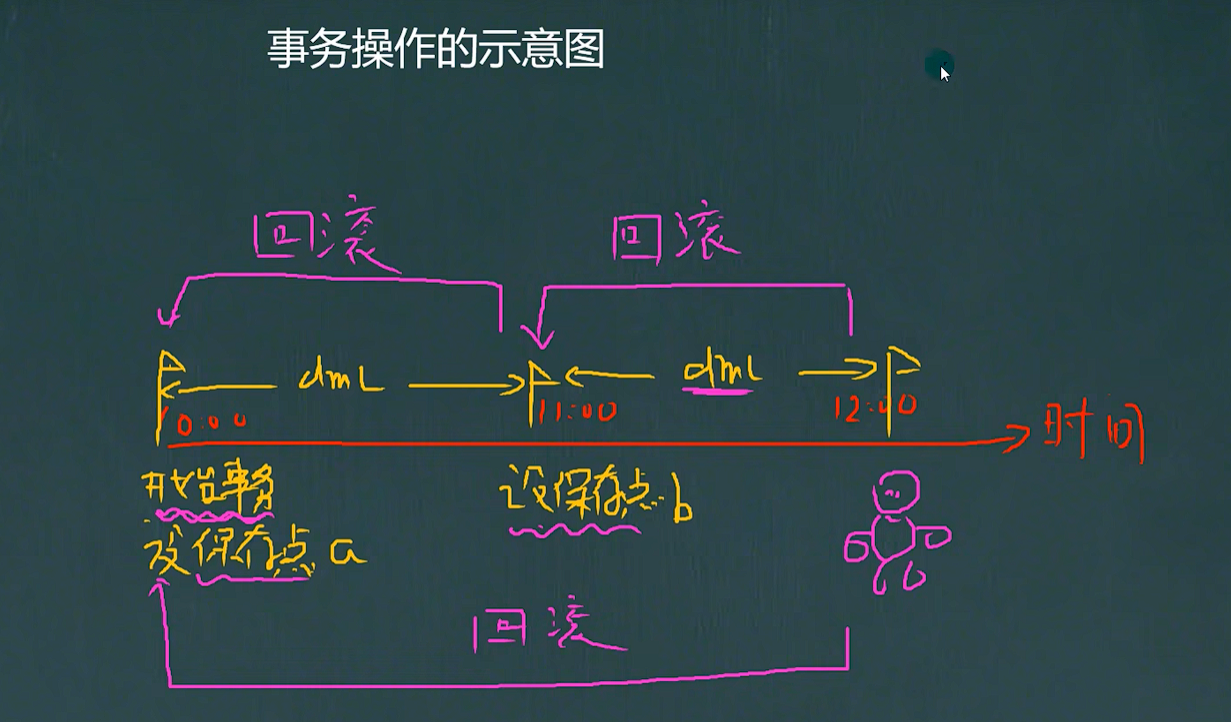 事务操作的示意图
回滚
回滚
dmL
dmL
10:00
11:00
12:00
时间
开始事务
设保存点 a
设保存点 b
回滚